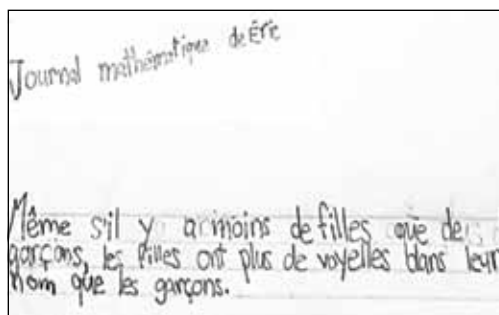 Journal mathématique de Éric
Même s'il y a moins de filles que de
garçons, les filles ont plus de voyelles dans leur
nom que les garçons.